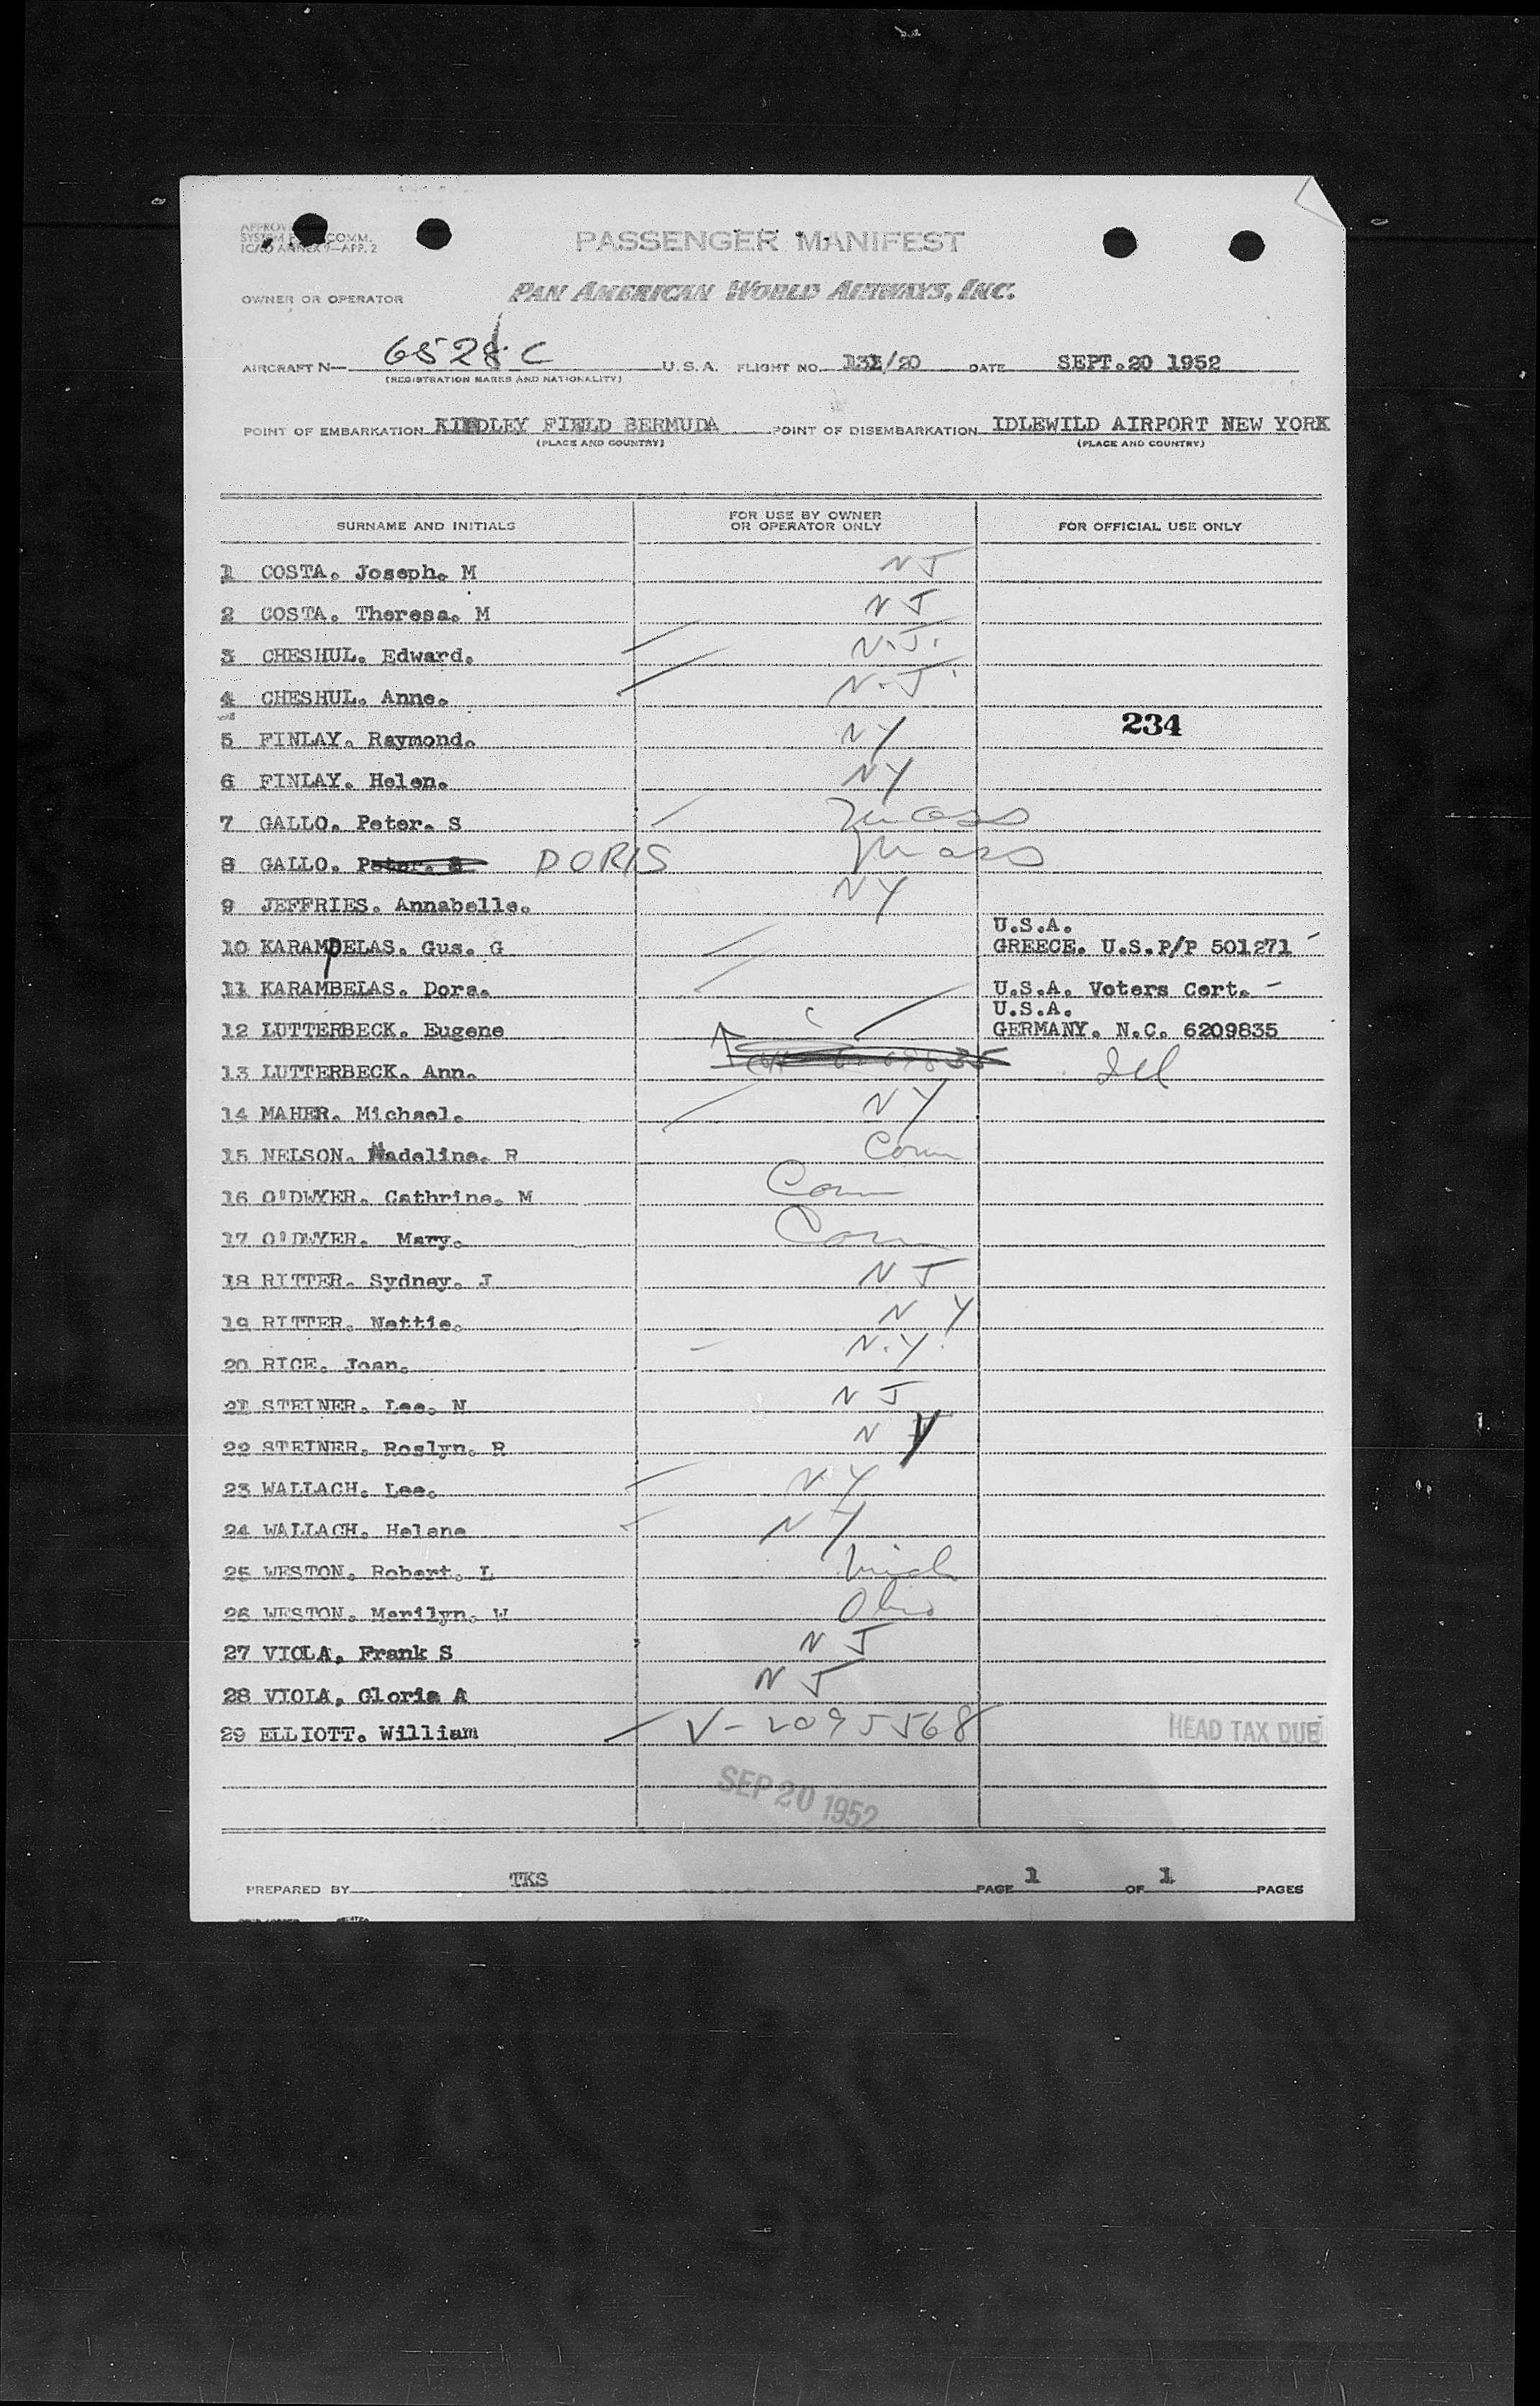 APPROV
SYSTEM COMM.
ICAO ANNEX 9—APP. 2
PASSENGER MANIFEST
OWNER OR OPERATOR PAN AMERICAN WORLD AIRWAYS, INC.
AIRCRAFT N— 6528C U.S.A. FLIGHT NO. 131/20 DATE SEPT.20 1952
(REGISTRATION MARKS AND NATIONALITY)
POINT OF EMBARKATION KINDLEY FIELD BERMUDA POINT OF DISEMBARKATION IDLEWILD AIRPORT NEW YORK
(PLACE AND COUNTRY) (PLACE AND COUNTRY)
SURNAME AND INITIALS FOR USE BY OWNER OR OPERATOR ONLY FOR OFFICIAL USE ONLY
1 COSTA. Joseph. M NJ
2 COSTA. Theresa. M NJ
3 CHESHUL. Edward. N.J.
4 CHESHUL. Anne. N.J.
234
5 FINLAY. Raymond. NY
6 FINLAY. Helen. NY
7 GALLO. Peter. S Mass
8 GALLO. Peter. S DORIS Mass
9 JEFFRIES. Annabelle. NY
U.S.A.
10 KARAMPELAS. Gus. G GREECE. U.S.P/P 501271
11 KARAMBELAS. Dora. U.S.A. Voters Cert.
U.S.A.
12 LUTTERBECK. Eugene GERMANY. N.C. 6209835
13 LUTTERBECK. Ann. Ill
14 MAHER. Michael. NY
15 NELSON. Madeline. R Conn
16 O'DWYER. Cathrine. M Conn
17 O'DWYER. Mary. Conn
18 RITTER. Sydney. J NJ
19 RITTER. Nettie. NY
20 RICE. Joan. N.Y.
21 STEINER. Lee. N NJ
22 STEINER. Roslyn. R NY
23 WALLACH. Lee. NY
24 WALLACH. Helene NY
25 WESTON. Robert. L Mich
26 WESTON. Marilyn. W Ohio
27 VIOLA, Frank S NJ
28 VIOLA, Gloria A NJ
29 ELLIOTT. William V-2095568 HEAD TAX DUE
SEP 20 1952
PREPARED BY TKS PAGE 1 OF 1 PAGES